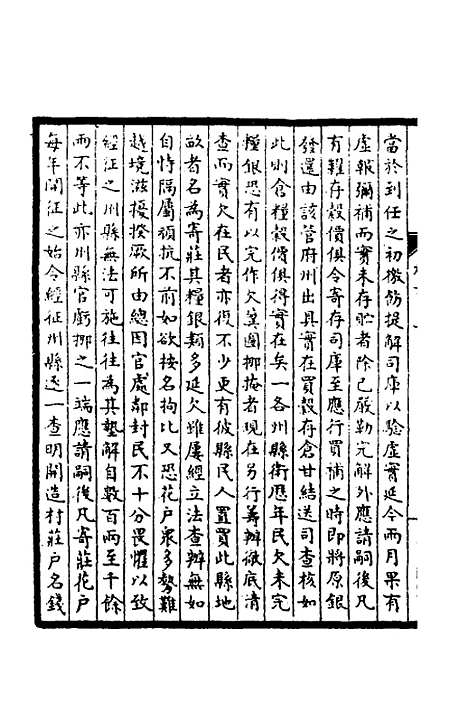 當於到任之初檄飭提解司庫以驗虛實延今兩月果有
虛報彌補而實未存貯者除已嚴勒完解外應請嗣後凡
有報存穀價俱令寄存司庫至應行買補之時即將原銀
發還由該管府州出具實在買穀存倉甘結送司查核如
此則倉糧穀價俱得實在矣一各州縣衛歷年民欠未完
糧銀恐有以完作欠冀圖挪掩者現在另行籌辦徹底清
查而實欠在民者亦復不少更有彼縣民人置買此縣地
畝者名為寄莊其糧銀類多延欠雖屢經立法查辦無如
自恃隔屬頑抗不前如欲按名拘比又恐花戶眾多勢難
越境滋擾揆厥所由總因官處鄰封民不十分畏懼以致
經征之州縣無法可施往往為其墊解自數百兩至千餘
而不等此亦州縣官虧挪之一端應請嗣後凡寄莊花戶
每年開征之始令經征州縣逐一查明開造村莊戶名錢